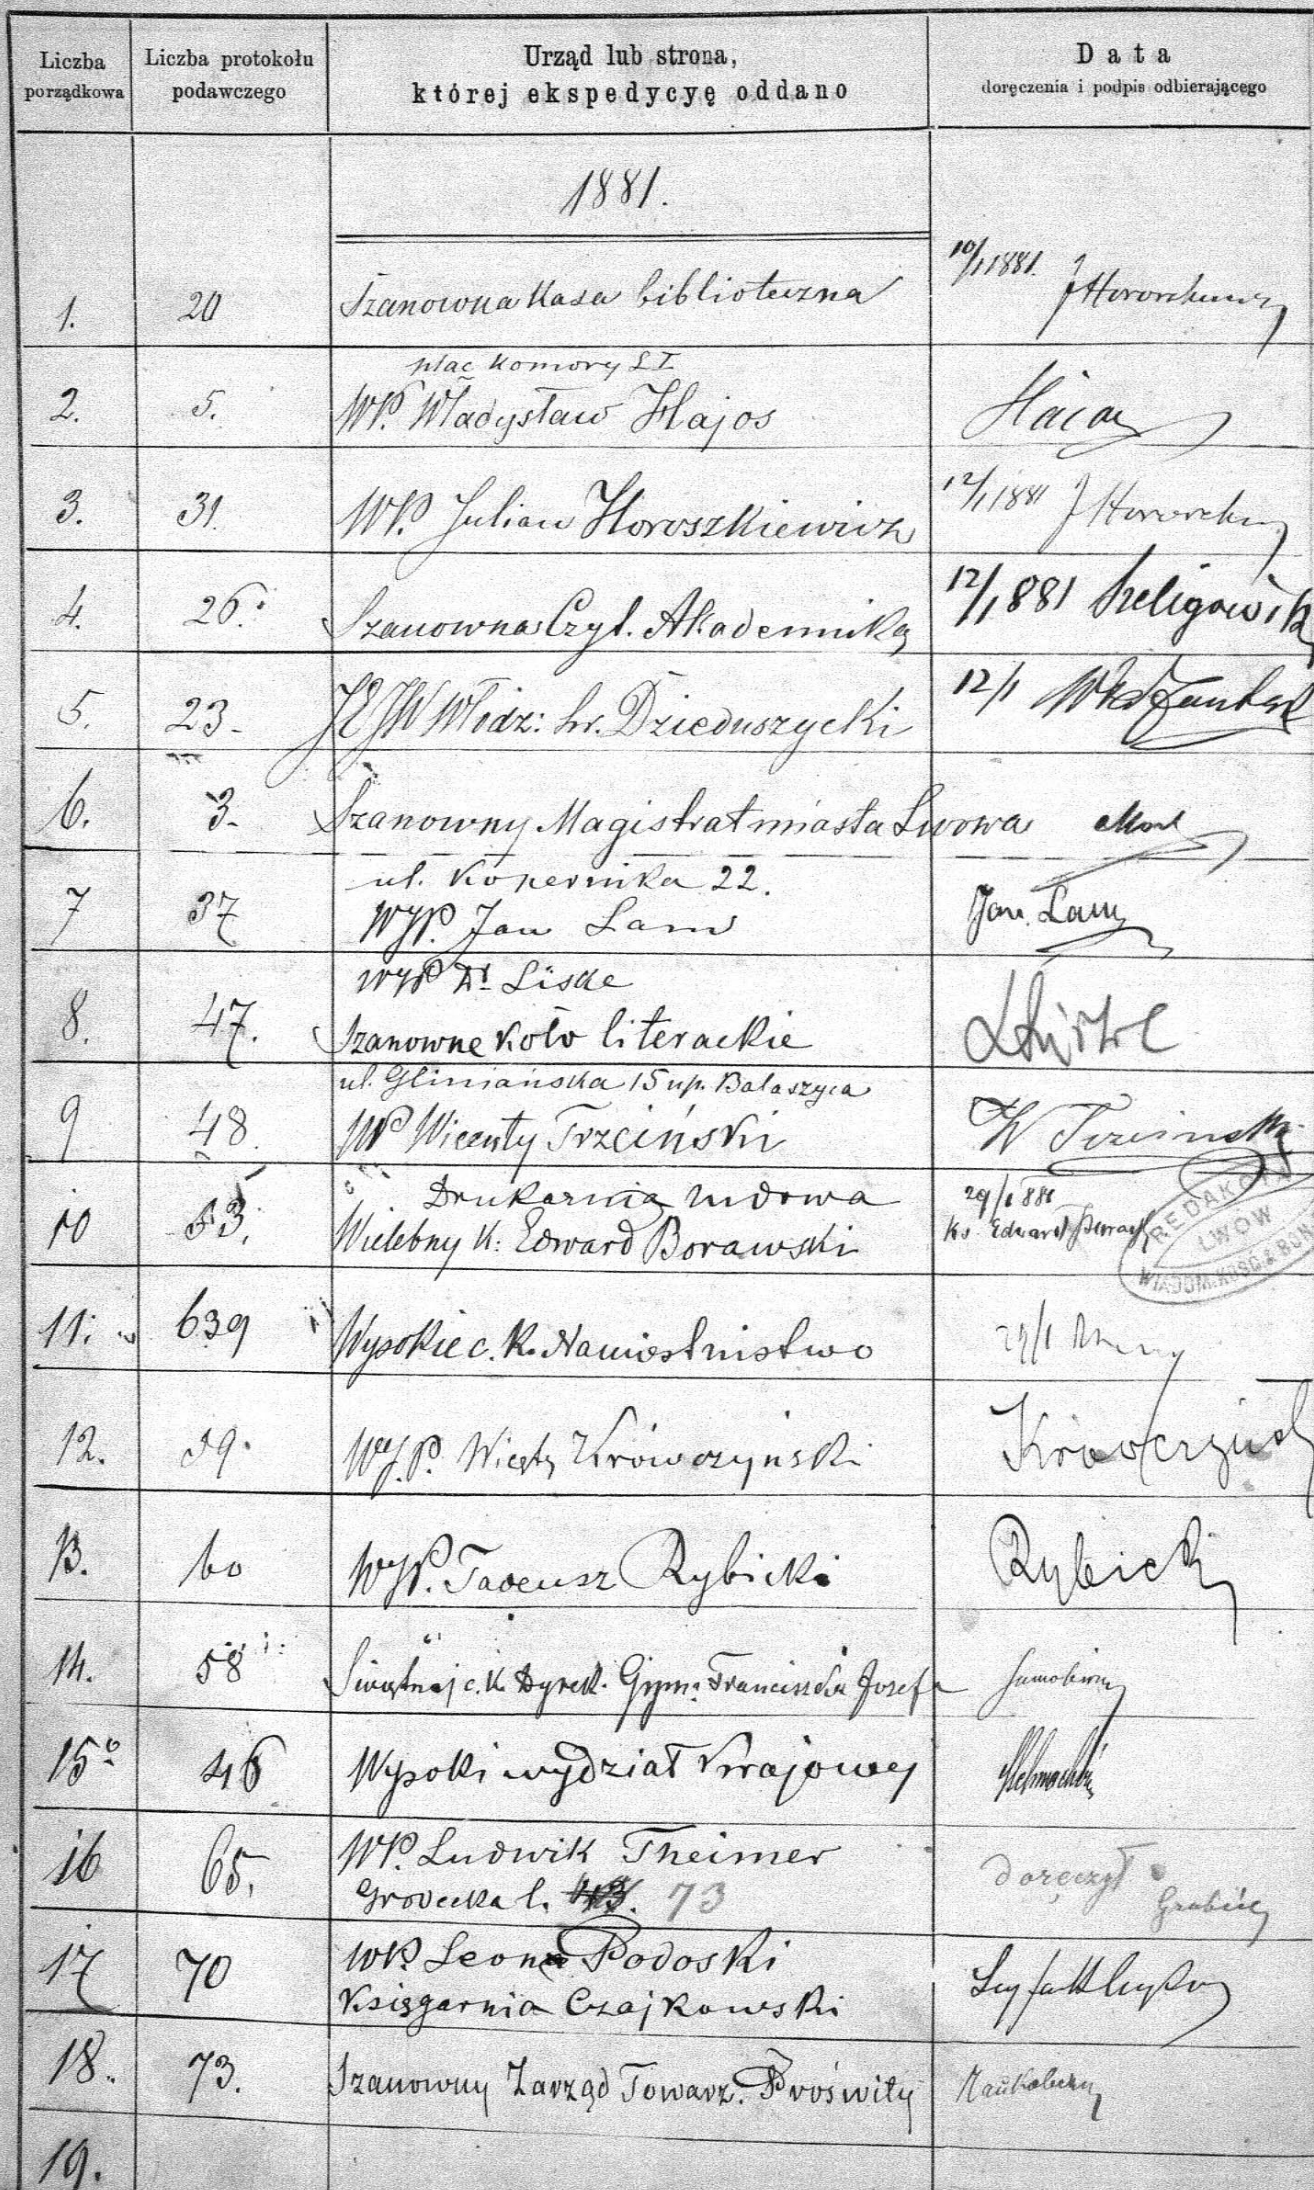 Liczba porządkowa
Liczba protokołu podawczego
Urząd lub strona,
której ekspedycyę oddano
Data
doręczenia i podpis odbierającego
1881.
1. 20 Szanowna Kasa biblioteczna 10/1 1881. J Horoszkiewicz
plac Komory L I
2. 5. WP. Władysław Hajos Hajos
3. 31. WP. Julian Horoszkiewicz 12/1 1881 J Horoszk
4. 26. Szanowna Czyt. Akademicka 12/1 881 Szeligowski
5. 23. JE JW Włodz: hr. Dzieduszycki 12/1
6. 3. Szanowny Magistrat miasta Lwowa
ul. Kopernika 22.
7 37 WJP. Jan Lam Jan Lam
WJP Dr Liske
8. 47. Szanowne Koło literackie
ul. Gliniańska 15 np. Balaszyca
9 48. WP Wicenty Trzciński W Trzcinski
Drukarnia ludowa
10 53. Wielebny K: Edward Borawski 29/1 881
Ks. Edward Borawski
REDAKCYA
LWÓW
WIADOM. KOŚC. & BON
11. 639 Wysokie c. k. Namiestnistwo 29/1
12. 59. WJ.P. Wicęty Krówczyński Krówczyński
13. 60 WJP. Tadeusz Rybicki Rybicki
14. 58 Świetnej c. k. Dyrek. Gymn. Franciszka Josefa
15. 46 Wysoki wydział Krajowey
16 65. WP. Ludwik Theimer doręczył
Grodecka l. 73
17 70 WP. Leon Podoski
Księgarnia Czajkowski
18. 73. Szanowny Zarząd Towarz. Prószwity
19.